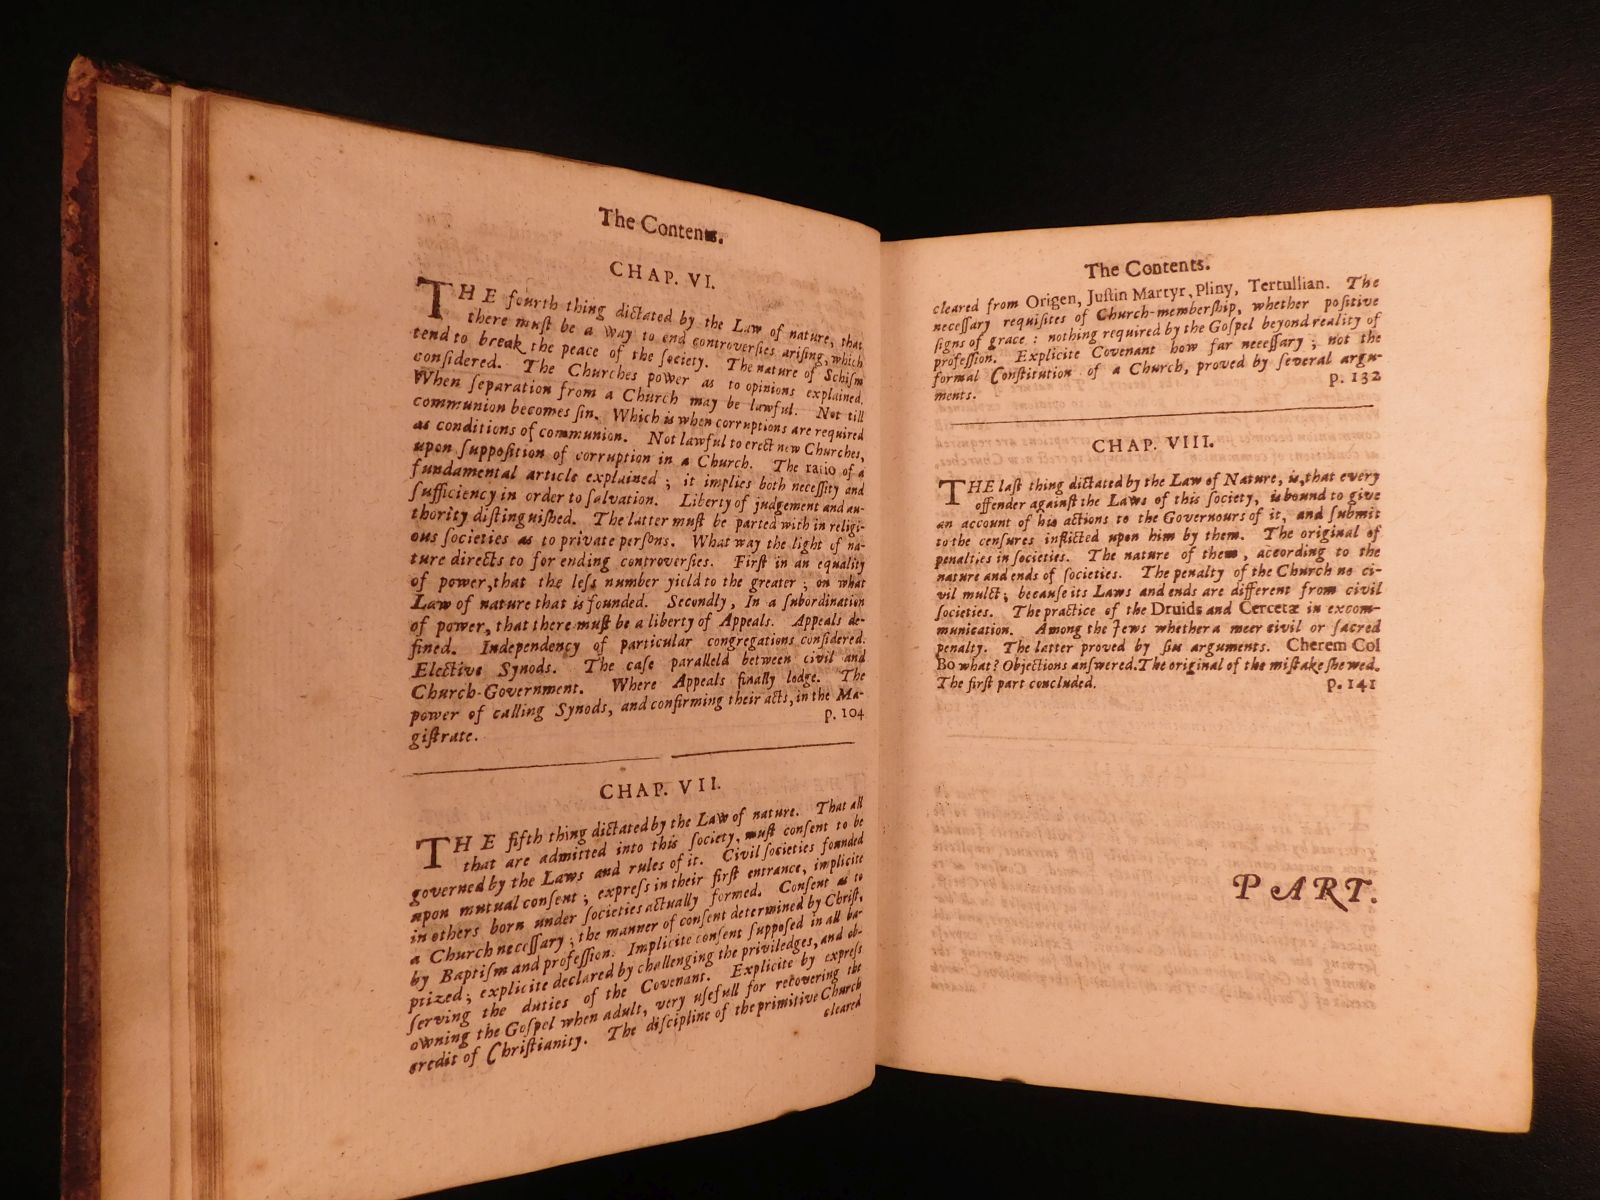 The Contents.
CHAP. VI.
THE fourth thing dictated by the Law of nature, that
there muſt be a way to end controverſies ariſing, which
tend to break the peace of the ſociety. The nature of Schiſm
conſidered. The Churches power as to opinions explained.
When ſeparation from a Church may be lawful. Not till
communion becomes ſin. Which is when corruptions are required
as conditions of communion. Not lawful to erect new Churches,
upon ſuppoſition of corruption in a Church. The ratio of a
fundamental article explained ; it implies both neceſſity and
ſufficiency in order to ſalvation. Liberty of judgement and au-
thority diſtinguiſhed. The latter muſt be parted with in religi-
ous ſocieties as to private perſons. What way the light of na-
ture directs to for ending controverſies. Firſt in an equality
of power, that the leſs number yield to the greater ; on what
Law of nature that is founded. Secondly, In a ſubordination
of power, that there muſt be a liberty of Appeals. Appeals de-
fined. Independency of particular congregations conſidered.
Elective Synods. The caſe paralleld between civil and
Church-Government. Where Appeals finally lodge. The
power of calling Synods, and confirming their acts, in the Ma-
giſtrate. p. 104
CHAP. VII.
THE fifth thing dictated by the Law of nature. That all
that are admitted into this ſociety, muſt conſent to be
governed by the Laws and rules of it. Civil ſocieties founded
upon mutual conſent ; expreſs in their firſt entrance, implicite
in others born under ſocieties actually formed. Conſent as to
a Church neceſſary ; the manner of conſent determined by Chriſt,
by Baptiſm and profeſſion. Implicite conſent ſuppoſed in all ba-
ptized ; explicite declared by challenging the priviledges, and ob-
ſerving the duties of the Covenant. Explicite by expreſs
owning the Goſpel when adult, very uſefull for recovering the
credit of Chriſtianity. The diſcipline of the primitive Church
cleared
The Contents.
cleared from Origen, Juſtin Martyr, Pliny, Tertullian. The
neceſſary requiſites of Church-memberſhip, whether poſitive
ſigns of grace : nothing required by the Goſpel beyond reality of
profeſſion. Explicite Covenant how far neceſſary ; not the
formal Conſtitution of a Church, proved by ſeveral argu-
ments. p. 132
CHAP. VIII.
THE laſt thing dictated by the Law of Nature, is, that every
offender againſt the Laws of this ſociety, is bound to give
an account of his actions to the Governours of it, and ſubmit
to the cenſures inflicted upon him by them. The original of
penalties in ſocieties. The nature of them, according to the
nature and ends of ſocieties. The penalty of the Church no ci-
vil mulct ; becauſe its Laws and ends are different from civil
ſocieties. The practice of the Druids and Cercetæ in excom-
munication. Among the Jews whether a meer civil or ſacred
penalty. The latter proved by ſix arguments. Cherem Col
Bo what? Objections anſwered. The original of the miſtake ſhewed.
The firſt part concluded. p. 141
PART.